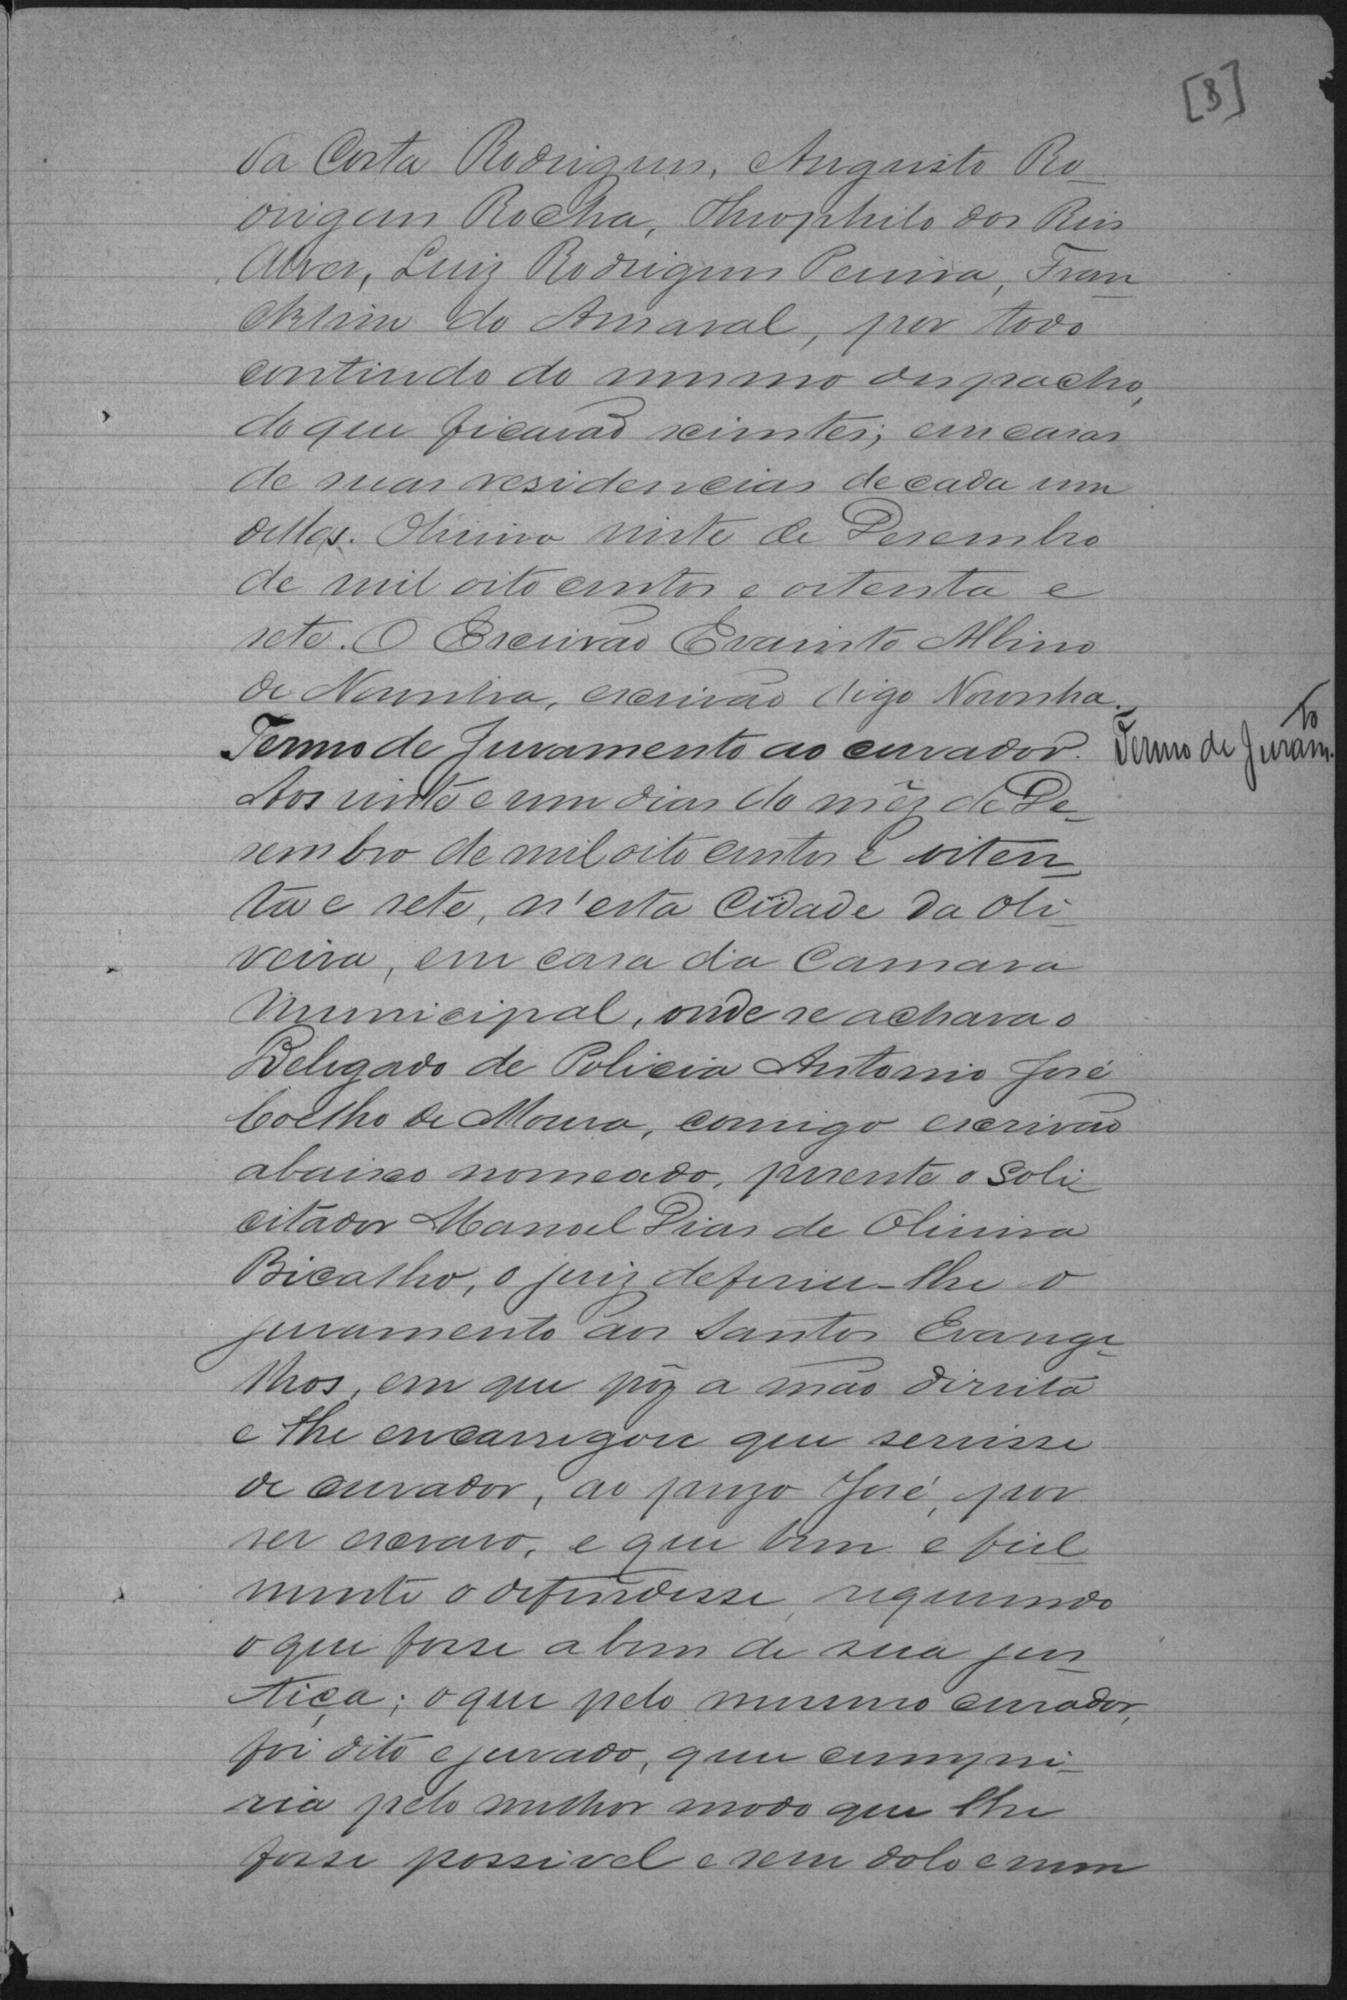 [8]
da Costa Rodrigues, Augusto Ro-
drigues Rocha, Theophilo dos Reis
Alves, Luiz Rodrigues Pereira, Fran-
cklim do Amaral, por todo
contiudo do mesmo despacho,
do que ficarão scientes; em casas
de suas residencias de cada um
delles. Oliveira vinte de Desembro
de mil oito centos e oitenta e
sete. O Escrivão Evaristo Albino
de Noronha, escrivão digo Noronha.
Termo de Juramento ao curador.
Termo de Juramto.
Aos vinte e um dias do mêz de De-
sembro de mil oito centos e oiten-
ta e sete, n'esta Cidade da Oli-
veira, em casa da Camara
Municipal, onde se achava o
Delegado de Policia Antonio José
Coelho de Moura, comigo escrivão
abaixo nomeado, presente o Soli-
citador Manoel Dias de Oliveira
Bicalho, o juiz deferiu-lhe o
juramento aos Santos Evange-
lhos, em que pôz a mão direita
e lhe encarregou que servisse
de curador, ao prezo José, por
ser escravo, e que bem e fiel
mente o defendesse, requerendo
o que fosse a bem de sua jus-
tiça; o que pelo mesmo curador,
foi dito e jurado, que cumpri-
ria pelo melhor modo que lhe
fosse possivel e sem dolo e nem